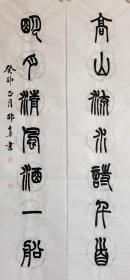 高山流水詩千首
明月清風酒一船
癸卯正月